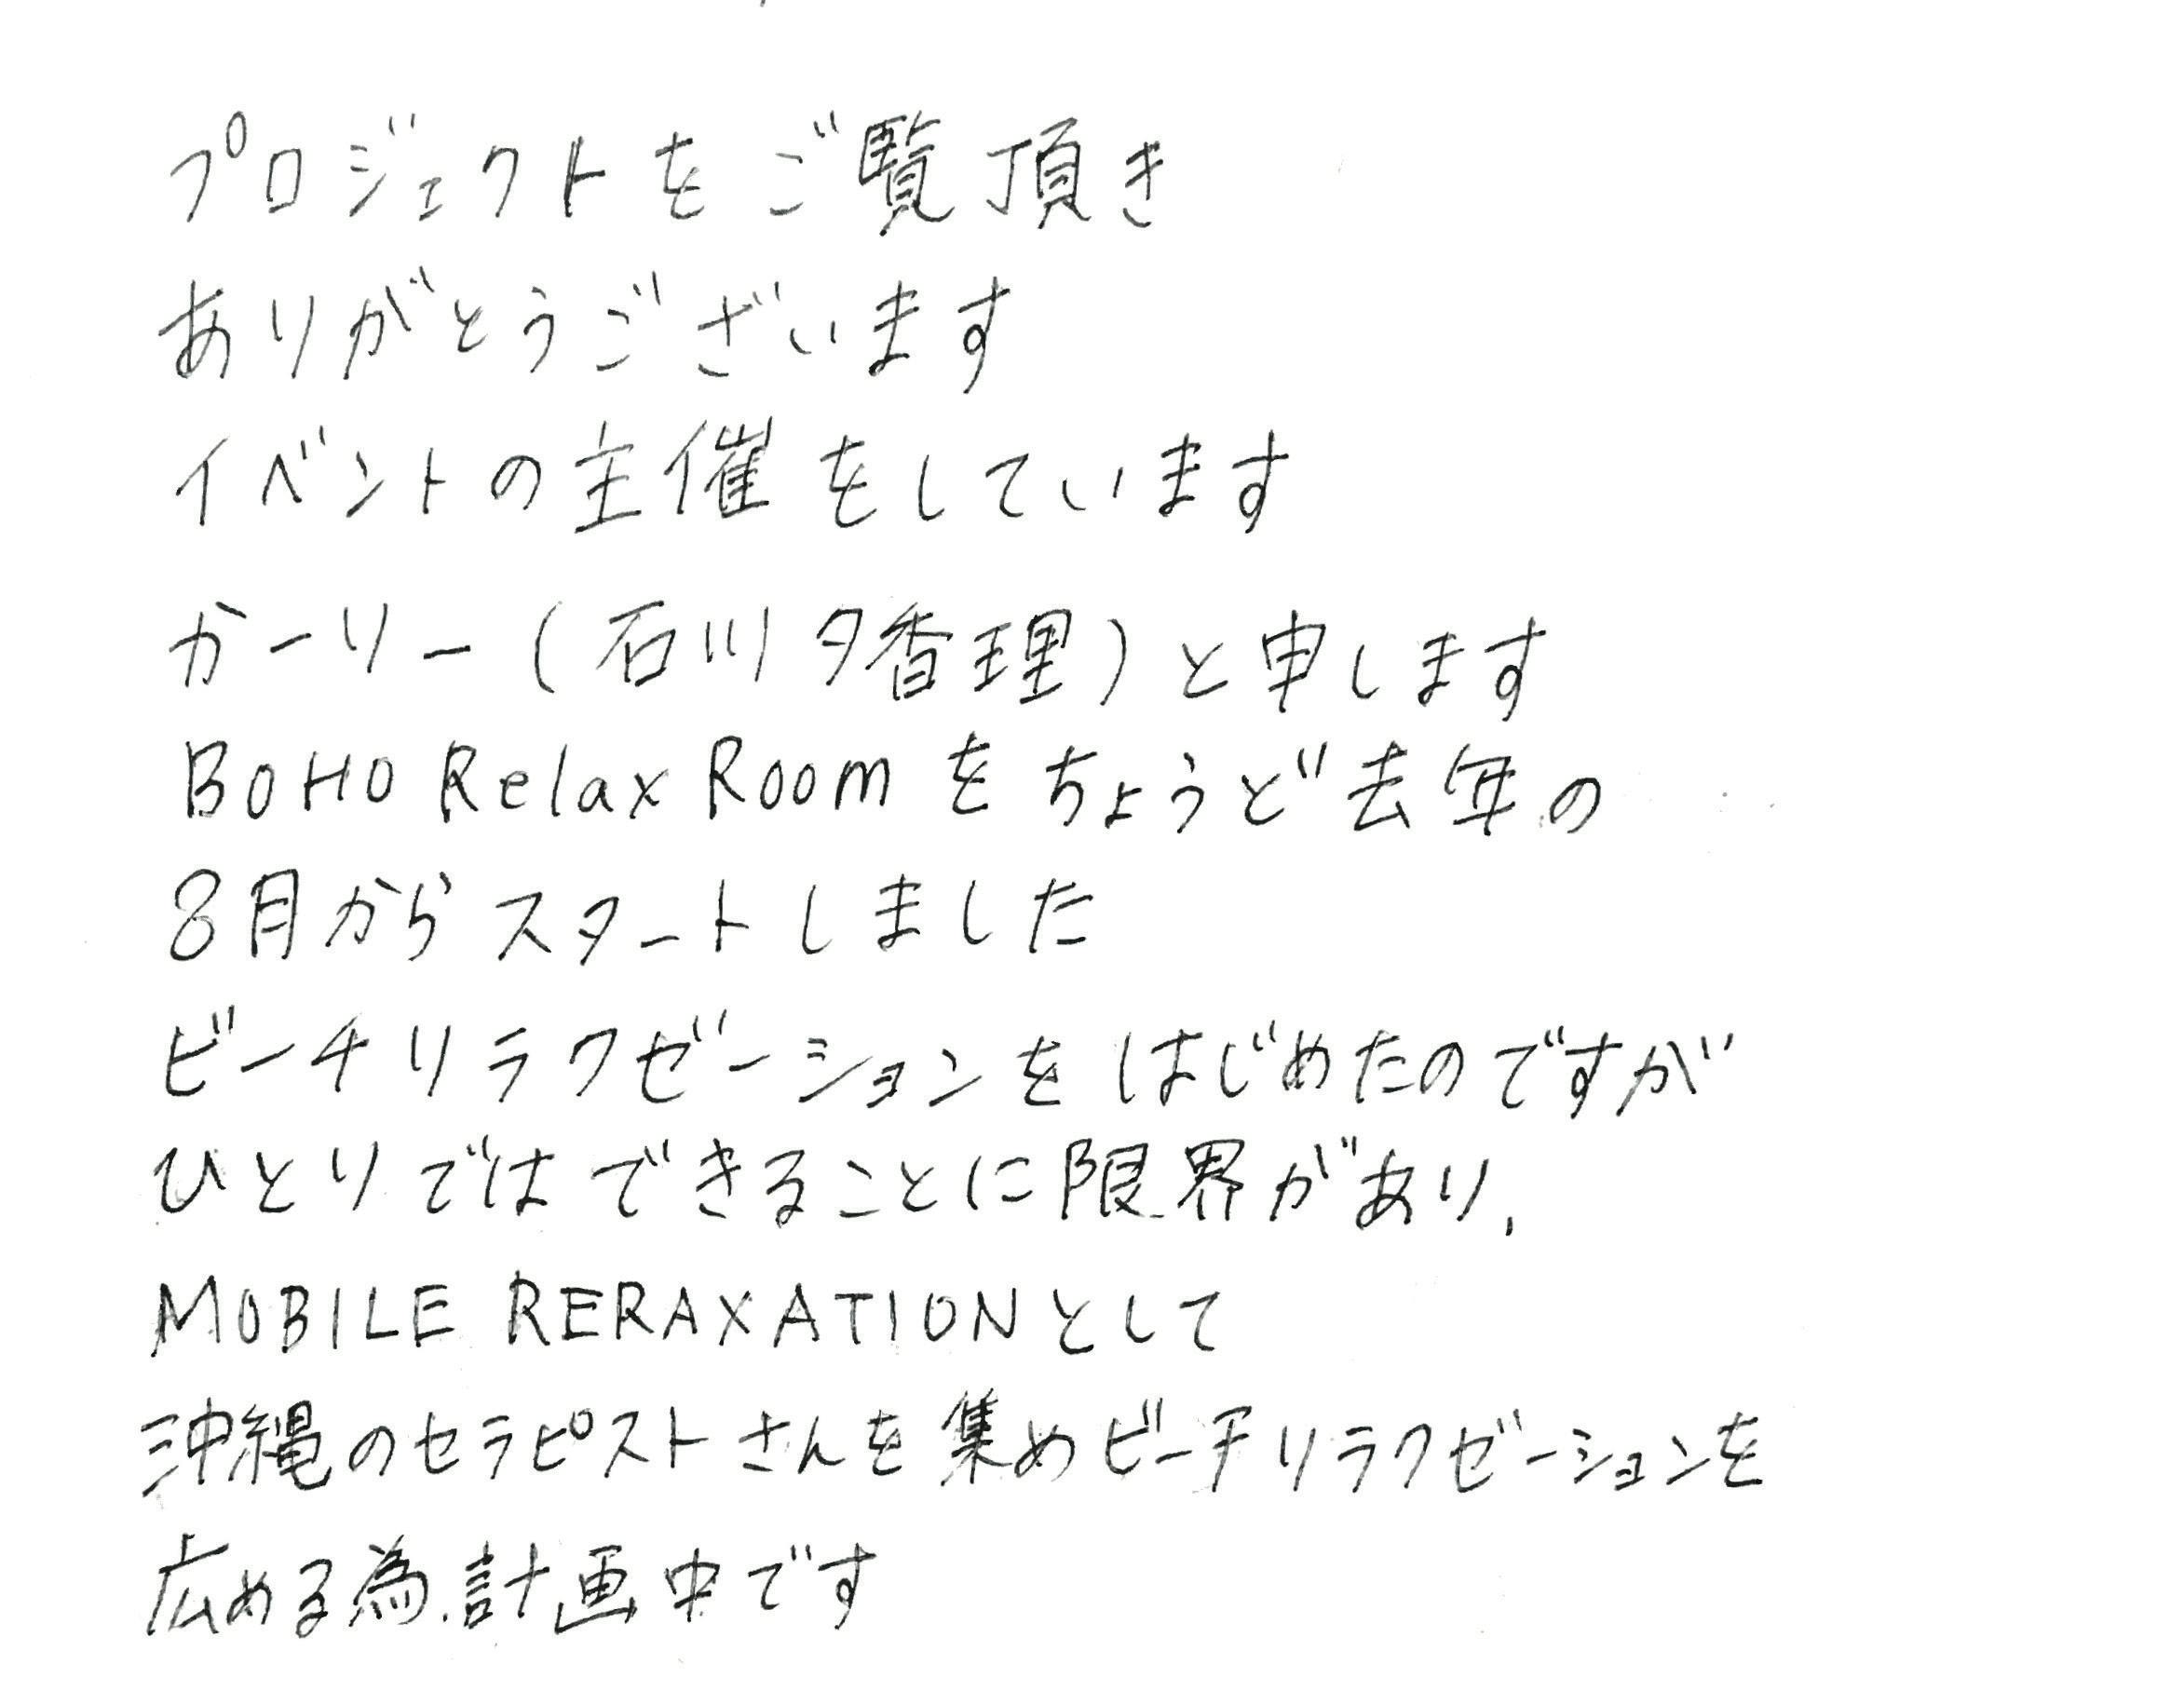 プロジェクトをご覧頂き
ありがとうございます
イベントの主催をしています
カーリー(石川夕香理)と申します
BOHO Relax Roomをちょうど去年の
8月からスタートしました
ビーチリラクゼーションをはじめたのですが
ひとりではできることに限界があり、
MOBILE RERAXATIONとして
沖縄のセラピストさんを集めビーチリラクゼーションを
広める為、計画中です